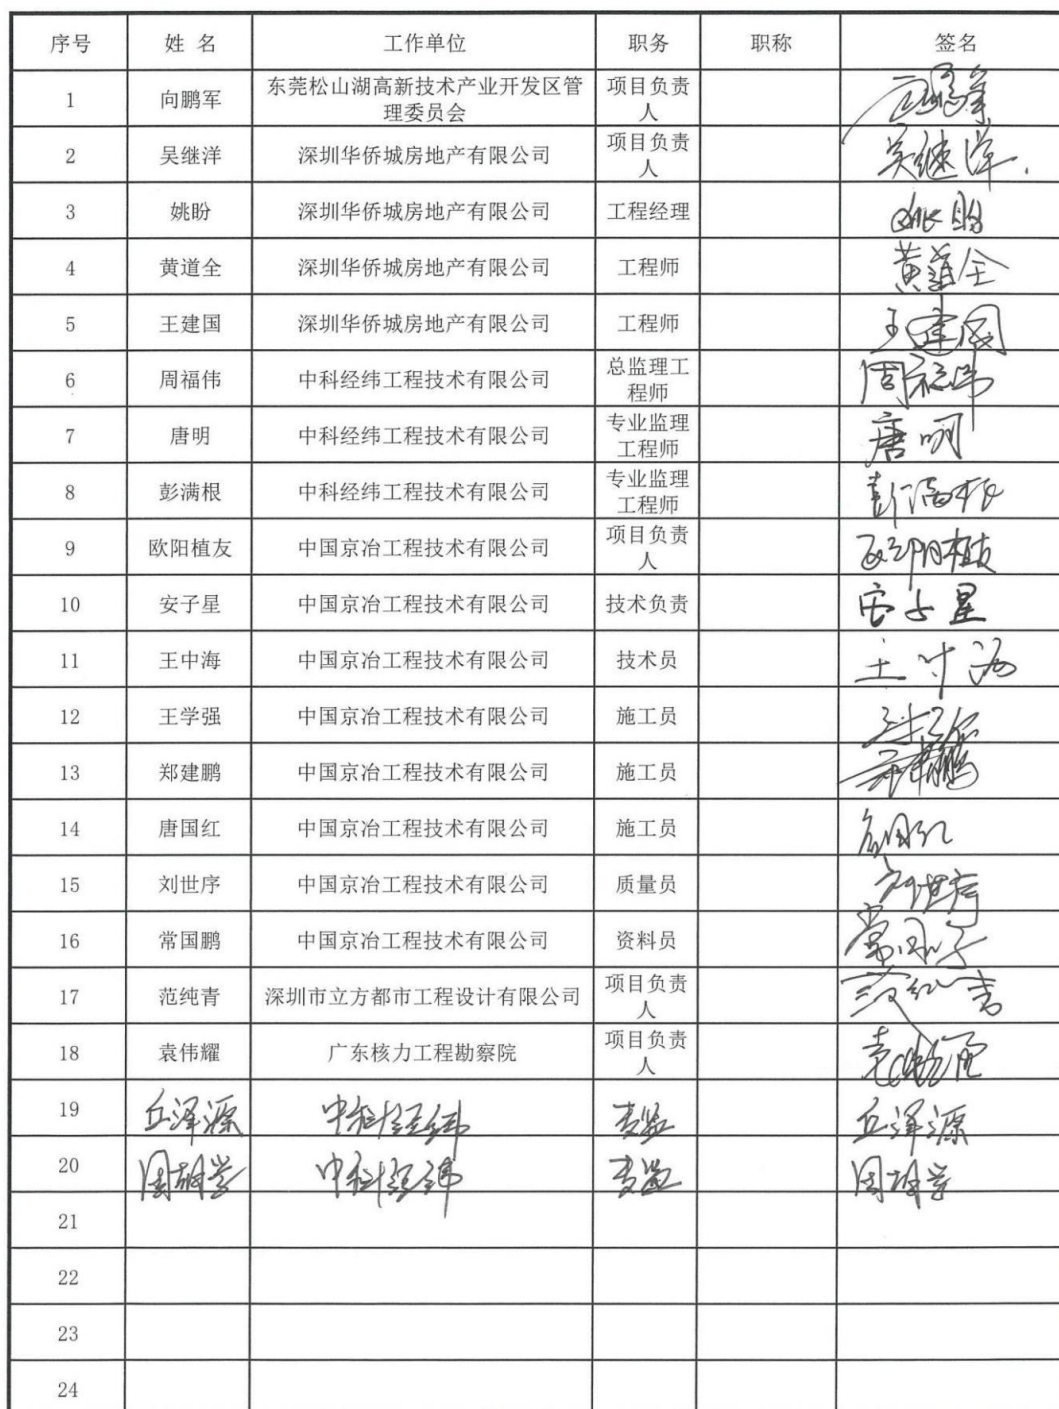 序号 姓 名 工作单位 职务 职称 签名
1 向鹏军 东莞松山湖高新技术产业开发区管 项目负责
理委员会 人
2 吴继洋 深圳华侨城房地产有限公司 项目负责 吴继洋
人
3 姚盼 深圳华侨城房地产有限公司 工程经理 姚盼
4 黄道全 深圳华侨城房地产有限公司 工程师 黄道全
5 王建国 深圳华侨城房地产有限公司 工程师 王建国
6 周福伟 中科经纬工程技术有限公司 总监理工 周福伟
程师
7 唐明 中科经纬工程技术有限公司 专业监理 唐明
工程师
8 彭满根 中科经纬工程技术有限公司 专业监理 彭满根
工程师
9 欧阳植友 中国京冶工程技术有限公司 项目负责 欧阳植友
人
10 安子星 中国京冶工程技术有限公司 技术负责 安子星
11 王中海 中国京冶工程技术有限公司 技术员 王中海
12 王学强 中国京冶工程技术有限公司 施工员
13 郑建鹏 中国京冶工程技术有限公司 施工员
14 唐国红 中国京冶工程技术有限公司 施工员 唐国红
15 刘世序 中国京冶工程技术有限公司 质量员 刘世序
16 常国鹏 中国京冶工程技术有限公司 资料员
17 范纯青 深圳市立方都市工程设计有限公司 项目负责 范纯青
人
18 袁伟耀 广东核力工程勘察院 项目负责
人
19 丘泽源 中科经纬 专监 丘泽源
20 周胡学 中科经纬 专监 周胡学
21
22
23
24